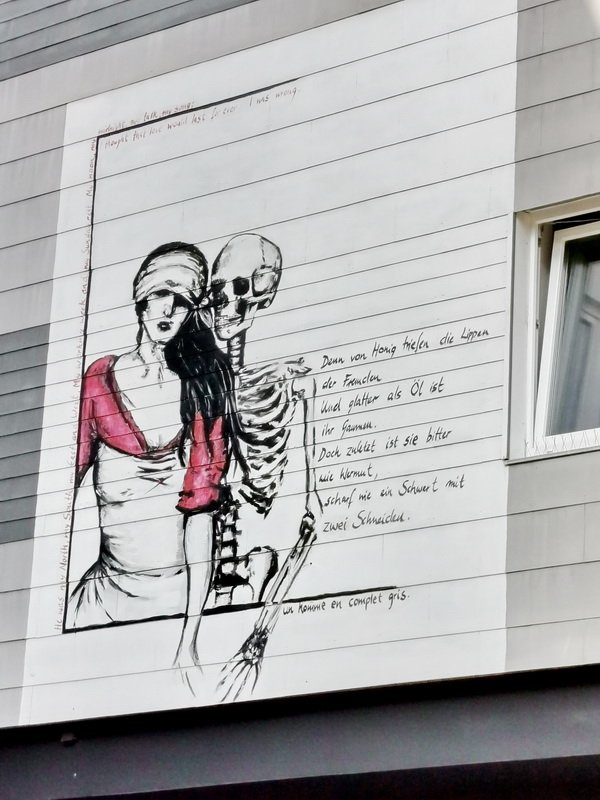 He was my North, my South, my East and West, My working week and my Sunday rest My noon, my
midnight, my talk, my song;
thought that love would last for ever I was wrong.
Denn von Honig triefen die Lippen
der Fremden
Und glatter als Öl ist
ihr Gaumen.
Doch zuletzt ist sie bitter
wie Wermut,
scharf wie ein Schwert mit
zwei Schneiden.
un homme en complet gris.